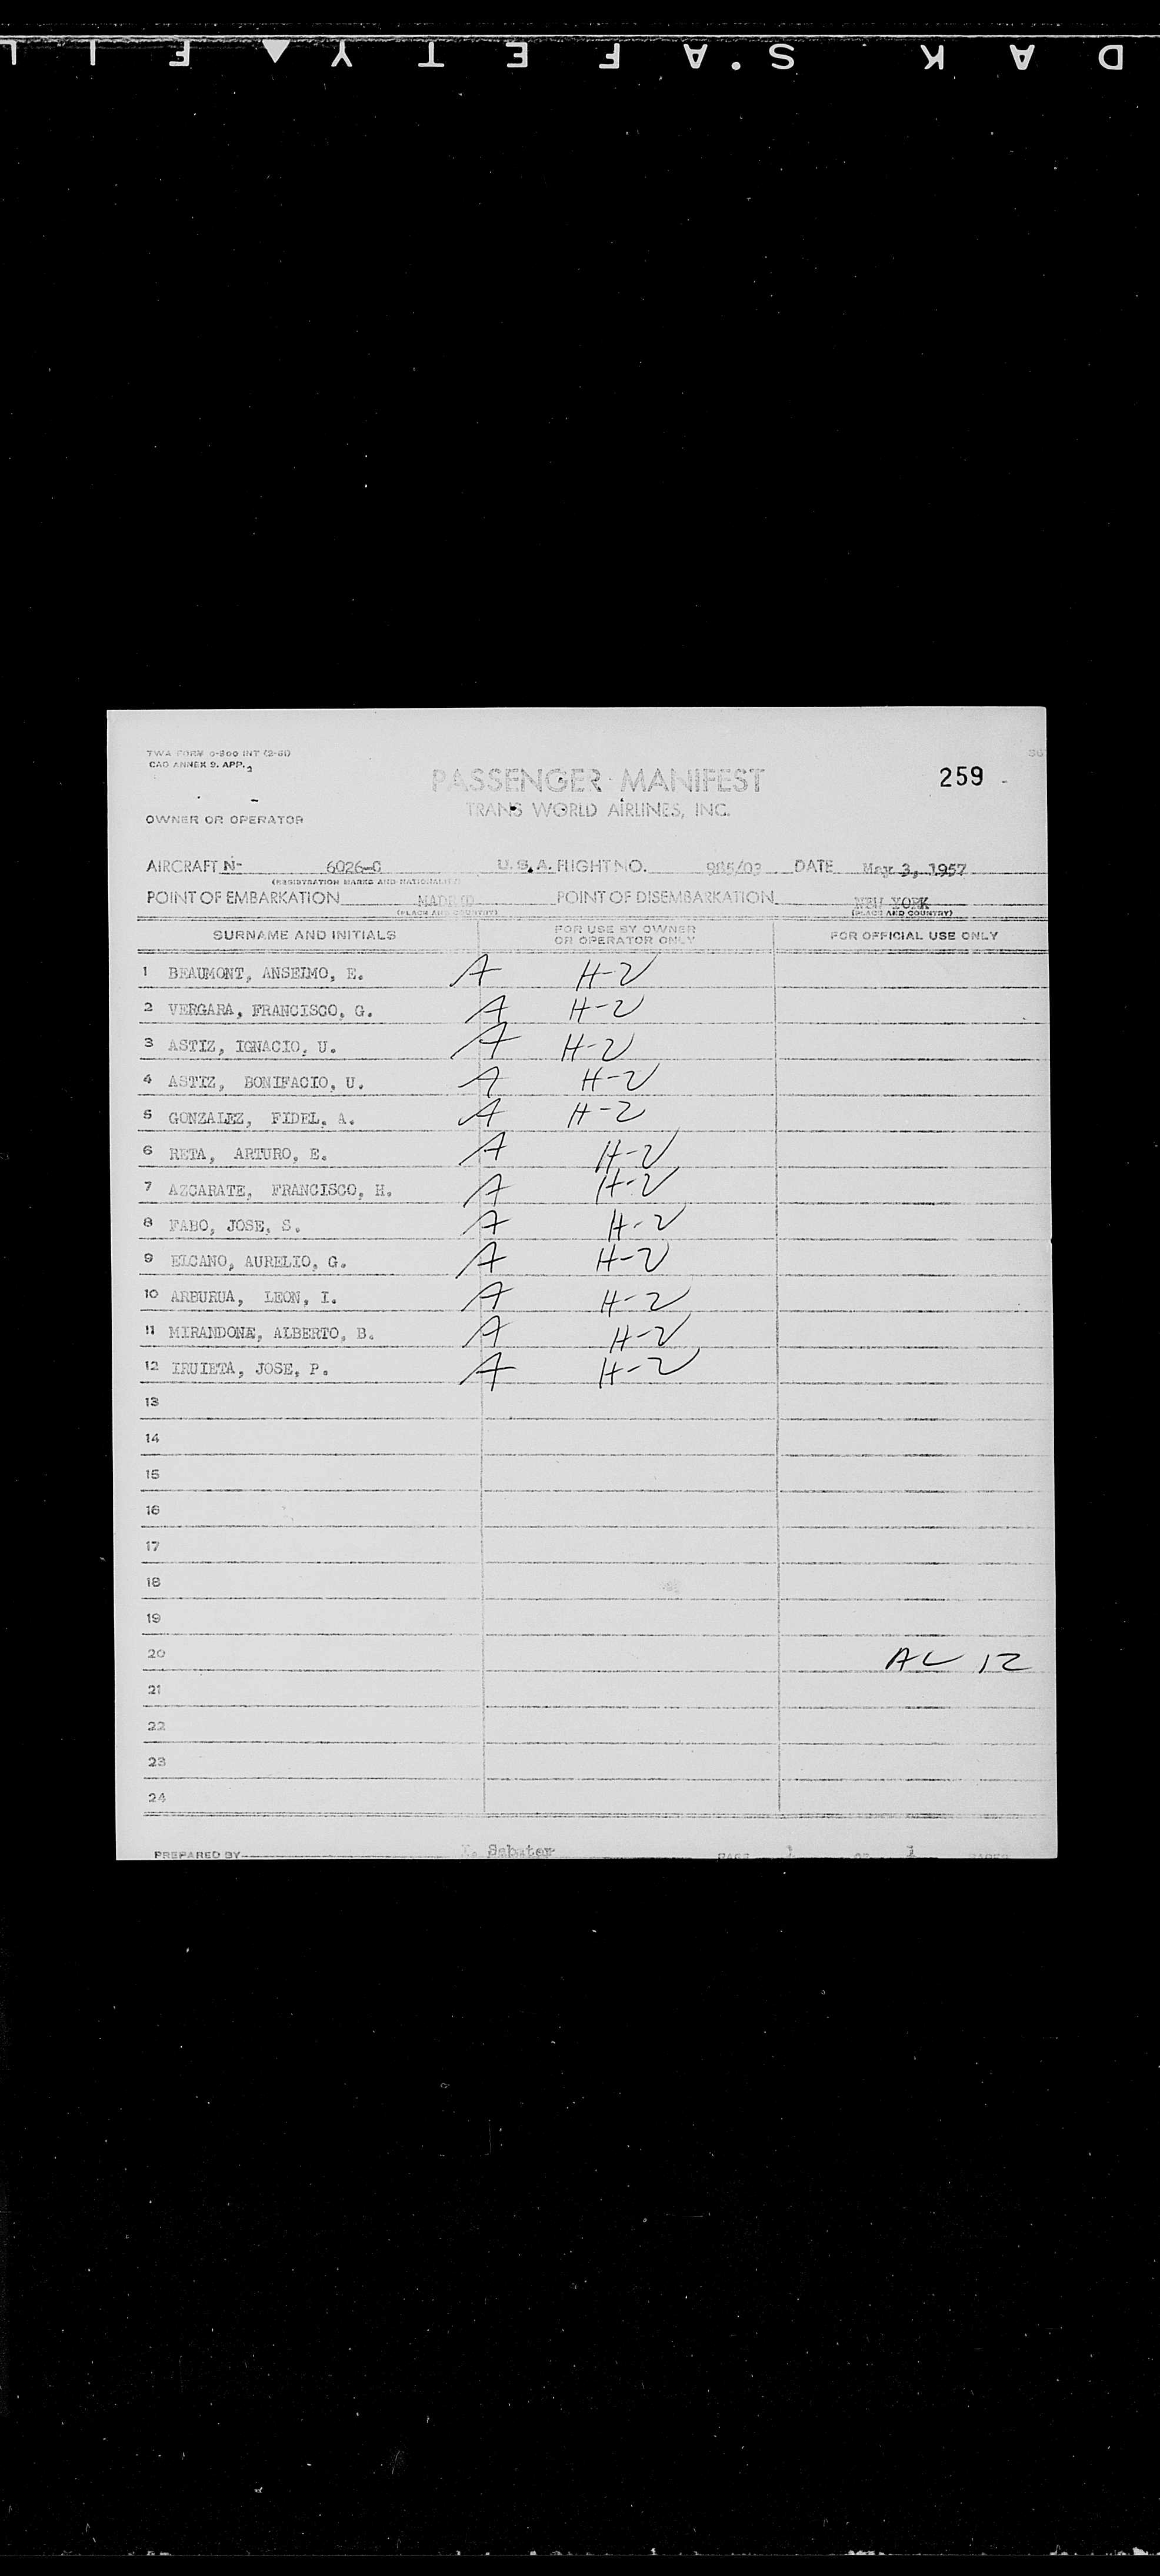 KODAK SAFETY FIL
TWA FORM 0-800 INT (2-51)
CAO ANNEX 9. APP. 2
259
PASSENGER MANIFEST
TRANS WORLD AIRLINES, INC.
OWNER OR OPERATOR
AIRCRAFT N- 6026-C U.S.A. FLIGHT NO. 985/03 DATE May 3, 1957
(REGISTRATION MARKS AND NATIONALITY)
POINT OF EMBARKATION MADRID POINT OF DISEMBARKATION NEW YORK
(PLACE AND COUNTRY) (PLACE AND COUNTRY)
SURNAME AND INITIALS FOR USE BY OWNER OR OPERATOR ONLY FOR OFFICIAL USE ONLY
1 BEAUMONT, ANSELMO, E. A H-2
2 VERGARA, FRANCISCO, G. A H-2
3 ASTIZ, IGNACIO, U. A H-2
4 ASTIZ, BONIFACIO, U. A H-2
5 GONZALEZ, FIDEL, A. A H-2
6 RETA, ARTURO, E. A H-2
7 AZCARATE, FRANCISCO, H. A H-2
8 FABO, JOSE, S. A H-2
9 ELCANO, AURELIO, G. A H-2
10 ARBURUA, LEON, I. A H-2
11 MIRANDONE, ALBERTO, B. A H-2
12 IRUIETA, JOSE, P. A H-2
13
14
15
16
17
18
19
20 AL 12
21
22
23
24
PREPARED BY Sabater PAGE 1 OF 1 PAGES